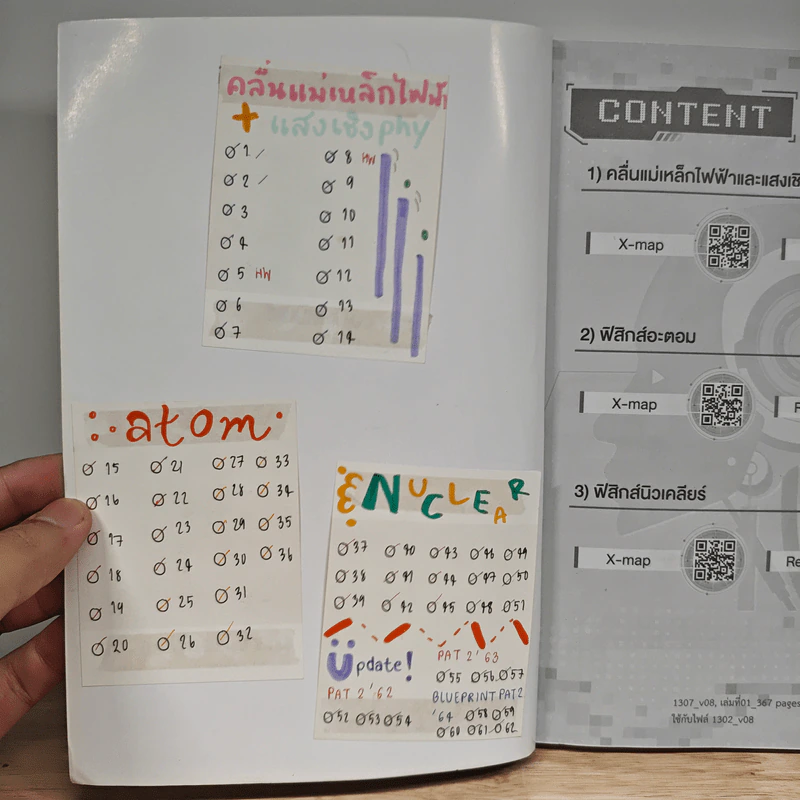 คลื่นแม่เหล็กไฟฟ้า
+ แสงเชิงphy
Ø 1 /
Ø 2 /
Ø 3
Ø 4
Ø 5 HW
Ø 6
Ø 7
Ø 8 HW
Ø 9
Ø 10
Ø 11
Ø 12
Ø 13
Ø 14
atom
Ø 15
Ø 16
Ø 17
Ø 18
Ø 19
Ø 20
Ø 21
Ø 22
Ø 23
Ø 24
Ø 25
Ø 26
Ø 27
Ø 28
Ø 29
Ø 30
Ø 31
Ø 32
Ø 33
Ø 34
Ø 35
Ø 36
& NUCLEAR
Ø 37 Ø 40 Ø 43 Ø 46 Ø 49
Ø 38 Ø 41 Ø 44 Ø 47 Ø 50
Ø 39 Ø 42 Ø 45 Ø 48 Ø 51
Update!
PAT 2 '62
Ø 52 Ø 53 Ø 54
PAT 2 '63
Ø 55 Ø 56 Ø 57
BLUEPRINT PAT2
'64 Ø 58 Ø 59
Ø 60 Ø 61 Ø 62
CONTENT
1) คลื่นแม่เหล็กไฟฟ้าและแสงเชิ
X-map
2) ฟิสิกส์อะตอม
X-map
3) ฟิสิกส์นิวเคลียร์
X-map
Re
1307_v08, เล่มที่01_367 pages
ใช้กับไฟล์ 1302_v08